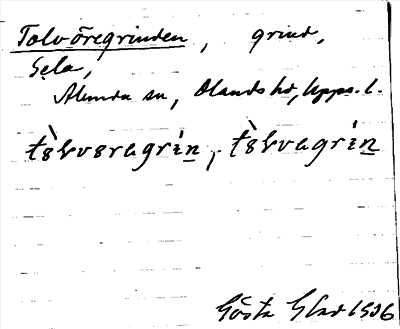 Tolvöregrinden, grind,
Sela,
Alunda sn, Olands hd, Upps. l.
tòlvöragrín, tòlvagrín
Gösta Glad 1936